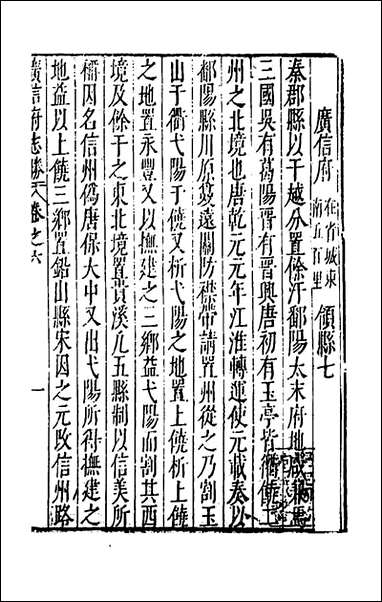 廣信府 在省城東南五百里 領縣七
秦郡縣以干越分置餘汗鄱陽太末府地咸
三國吳有葛陽晉有晉興唐初有玉亭皆衢饒二
州之北境也唐乾元元年江淮轉運使元載奏以
鄱陽縣川原夐遠關防襟帶請置州從之乃割玉
山于衢弋陽于饒又析弋陽之地置上饒析上饒
之地置永豐又以撫建之三鄉益弋陽而割其西
境及餘干之東北境置貴溪凡五縣制以信美所
稱因名信州僞唐保大中又出弋陽所得撫建之
地益以上饒三鄉置鉛山縣宋因之元改信州路
廣信府志勝 卷之六 一